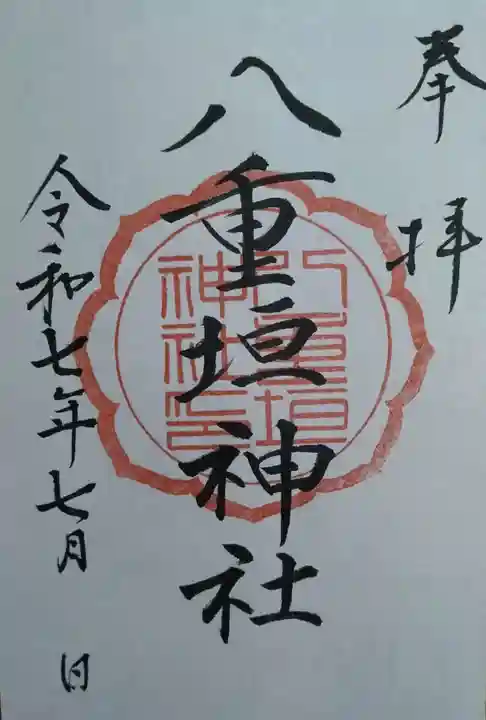 奉拝
八重垣神社
八重垣
神社之印
令和七年七月 日